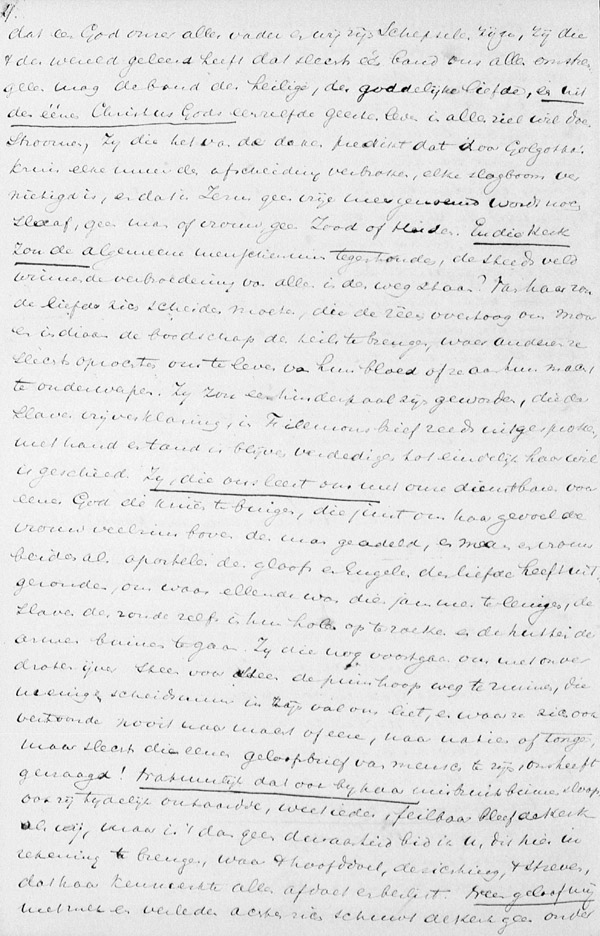 dat een God onzer aller vader en wij zijn Schepselen zijn, Zij die
de wereld geleerd heeft dat slechts één band ons allen omstren
gelen mag de band der heilige, der goddelijke liefde, en uit
den éénen Christus Gods eenzelfde geeste leven in aller ziel wil doen
Stroomen, Zij die het van de daken predikt dat door Golgotha's
kruis elke muur der afscheiding verbroken, elke slagboom ver
nietigd is, en dat in Jezus geen vrije meer genoemd wordt noch
Slaaf, geen man of vrouw, geen Jood of Heiden. En die Kerk
Zou de algemeene menschenmin tegenhouden, de steeds veld
winnende verbroedering van allen in den weg staan? Van haar zou
de liefde zich scheiden moeten, die de zeeën overtoog om
en indiaan de boodschap des heils te brengen, waar anderen ze
slechts opzochten om te leven van hun bloed of ze aan hun macht
te onderwerpen. Zij zou een hinderpaal zijn geworden, die de
Slaven vrijverklaring, in Filemons brief reeds uitgesproken,
met hand en tand is blijven verdedigen tot eindelijk haar wil
is geschied. Zij, die ons leert om met onze dienstbaren voor
eenen God de knieën te buigen, die juist om haar gevoel de
vrouw veelzins boven den man geadeld, en man en vrouw
beiden als apostelen des geloofs en Engelen der liefde heeft uit-
gezonden, om waar ellende was dien jammer te lenigen, de
Slaven der zonde zelfs in hun holen op te zoeken en de hutten der
armen binnen te gaan. Zij die nog voortgaat om met onver
droten ijver steen voor steen de puinhoop weg te ruimen, die
menige scheidsmuur in zijn val ons liet, en waar ze zich ook
vertoonde nooit naar macht of eere, naar natie of tongen,
maar slechts die eenen geloofsbrief van mensch te zijn, ons heeft
gevraagd! Natuurlijk dat ook bij haar misbruik binnensloop
ook zij tijdelijk ontaardde, weet ieder, feilbaar bleef de Kerk
als wij, maar is 't dan geen bid ik u, dit hier in
rekening te brengen, waar 't hoofddoel, de richting, 't streven,
dat haar kenmerkte alles afdoet en beslist. Neen geloof mij
met een verleden achter zich schuwt de Kerk geen onder